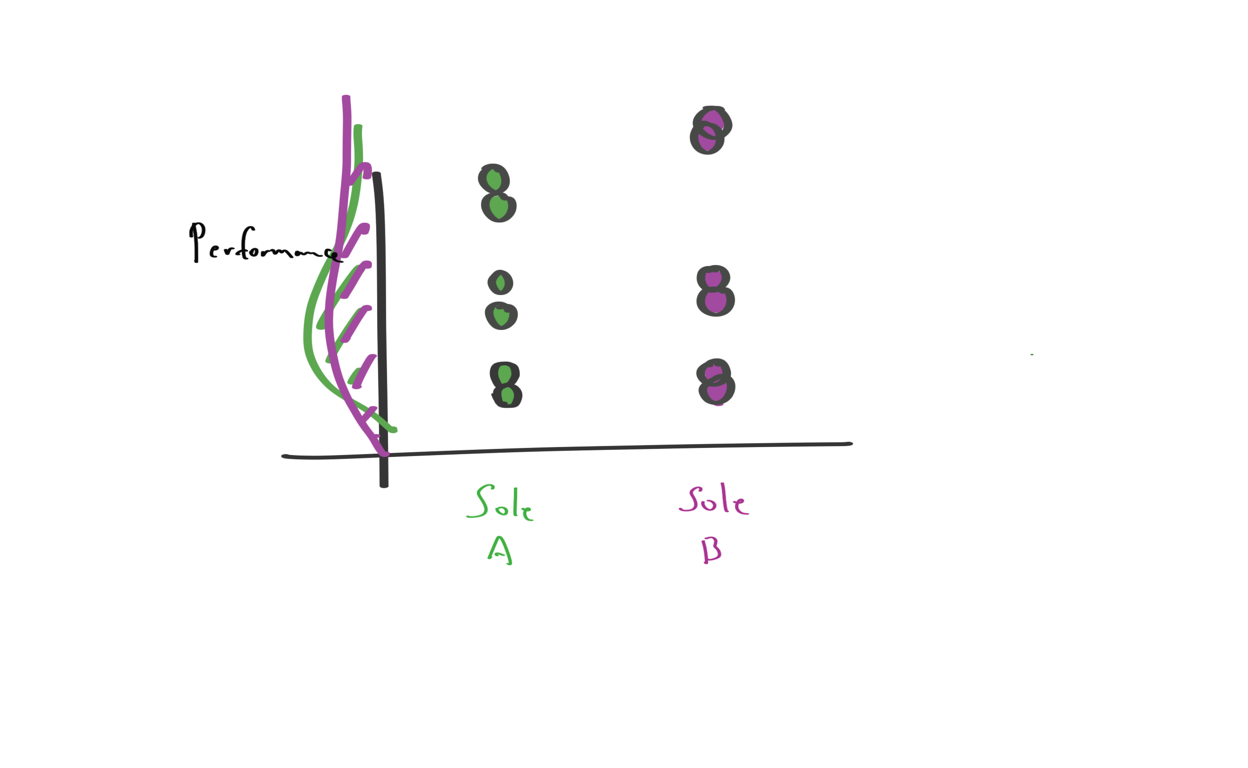 Performance
Sole
A
Sole
B